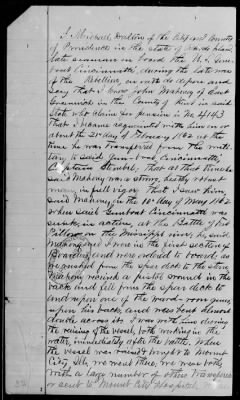 I Michael Walters of the City and County
of Providence in the State of Rhode Island
late seaman on board the U.S. Gun-
boat Cincinnatti, during the late war
of the Rebellion, on oath do depose and
say that I know John Mahoney of East
Greenwich in the County of Kent in said
State who claims for pension is No 4143
That I became acquainted with him on or
about the 21st day of February 1862 at the
time he was transferred from the mili-
tary to said Gun-boat Cincinnatti,
Captain Stembel, that at that time
said Mahoney was a strong, healthy robust
man, in full vigor. That I saw him
said Mahoney, on the 10th day of May 1862
when said Gunboat Cincinnatti was
sunk, in action, at the battle of Fort
Pillow on the Mississippi river; he, said
Mahoney and I were in the first section of
Boarders, and were ordered to board; as
we rushed from the spar deck to the
he received a wound in the
back and fell from the spar deck to
and upon one of the ward-room guns,
upon his back, and was bent almost
double across it. I was with him during
the raising of the vessel, both working in the
water, immediately after the battle. When
the vessel was raised brought to Mound
City Ills. we went there, we was both,
with a large number of others transferred
or sent to Mound City Hospital.